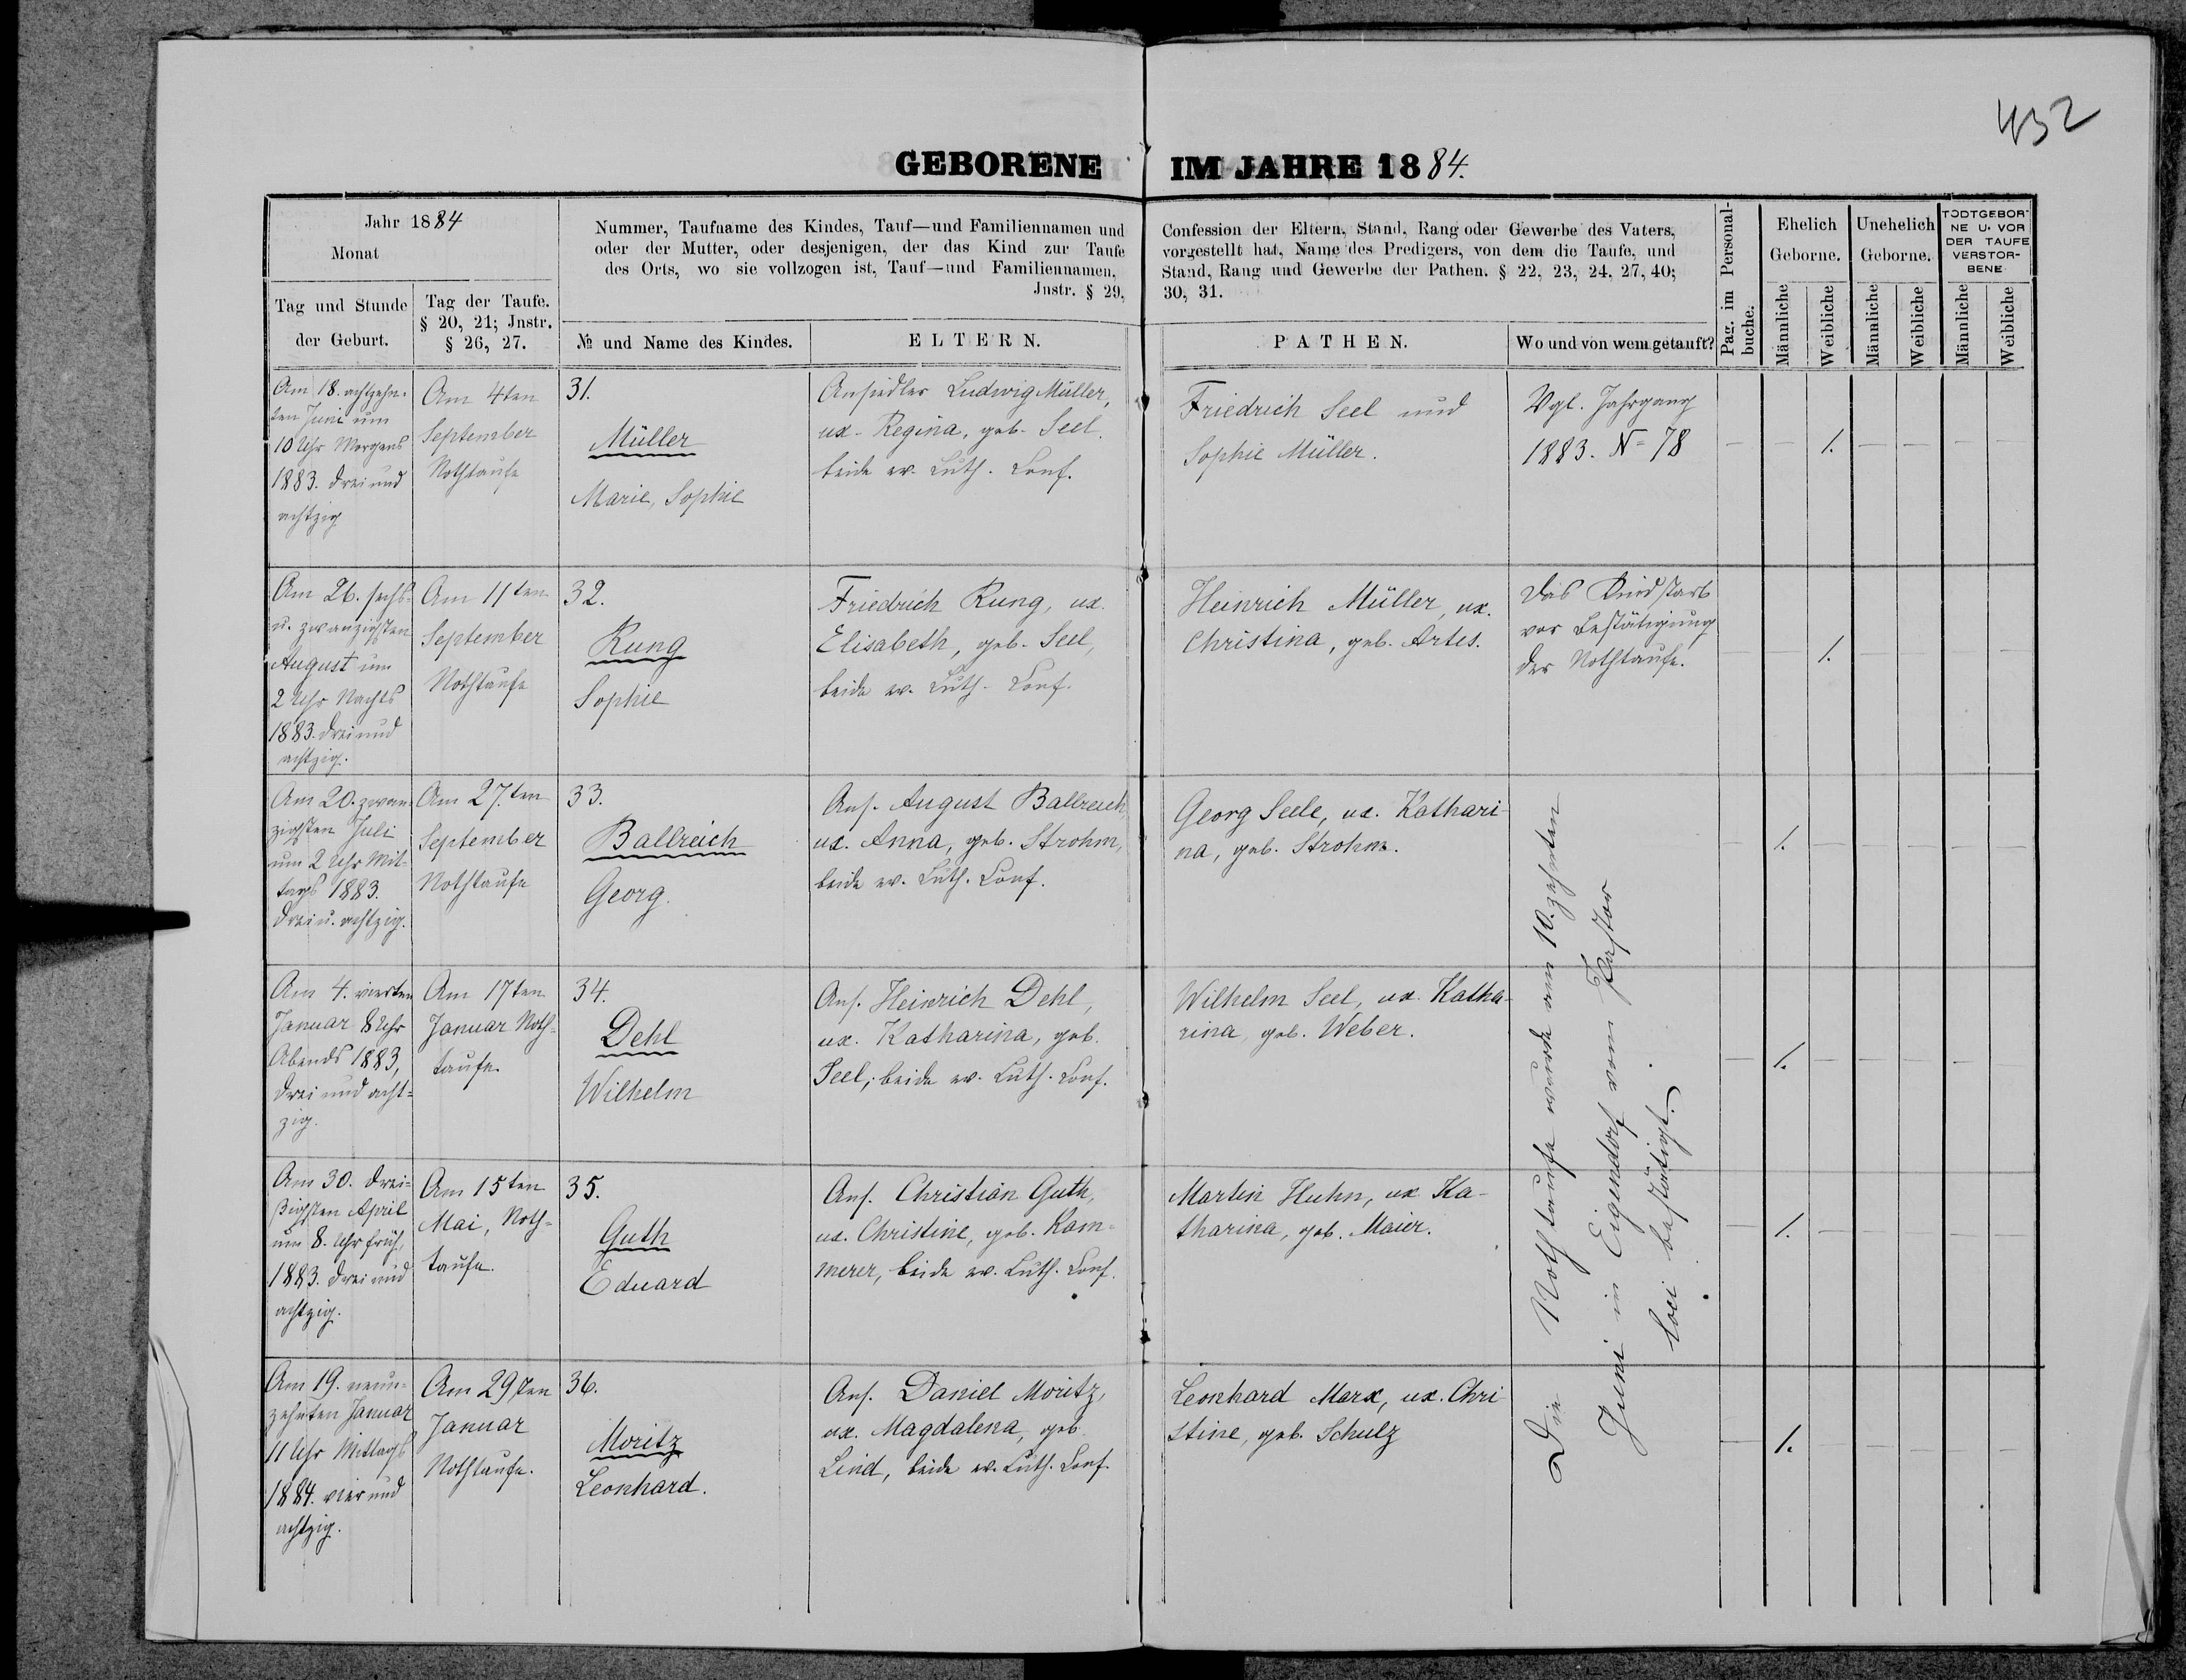 432
GEBORENE IM JAHRE 1884.
Jahr 1884
Monat
Tag und Stunde
der Geburt.
Tag der Taufe.
§ 20, 21; Jnstr.
§ 26, 27.
Nummer, Taufname des Kindes, Tauf—und Familiennamen und
oder der Mutter, oder desjenigen, der das Kind zur Taufe
des Orts, wo sie vollzogen ist, Tauf—und Familiennamen,
Jnstr. § 29,
№ und Name des Kindes.
ELTERN.
Confession der Eltern, Stand, Rang oder Gewerbe des Vaters,
vorgestellt hat, Name des Predigers, von dem die Taufe, und
Stand, Rang und Gewerbe der Pathen. § 22, 23, 24, 27, 40;
30, 31.
PATHEN.
Wo und von wem getauft?
Pag. im Personal-
buche.
Ehelich
Geborne.
Unehelich
Geborne.
TODTGEBOR-
NE U. VOR
DER TAUFE
VERSTOR-
BENE
Männliche
Weibliche
Männliche
Weibliche
Männliche
Weibliche
Am 18. achtzehn-
ten Juni um
10 Uhr Morgens
1883. drei und
achtzig
Am 4ten
September
Nothtaufe
31.
Müller
Marie, Sophie
Ansiedler Ludwig Müller,
ux. Regina, geb. Seel.
beide ev. Luth. Conf.
Friedrich Seel und
Sophie Müller.
Vgl. Jahrgang
1883. N= 78
— — 1. — — — —
Am 26. sechs-
u. zwanzigsten
August um
2 Uhr Nachts
1883. drei und
achtzig.
Am 11ten
September
Nothtaufe
32.
Rung
Sophie
Friedrich Rung, ux.
Elisabeth, geb. Seel,
beide ev. Luth. Conf.
Heinrich Müller, ux.
Christina, geb. Artes.
Das Kind starb
vor Bestätigung
der Nothtaufe.
— — 1. — — — —
Am 20. zwan-
zigsten Juli
um 2 Uhr Mit-
tags 1883.
drei u. achtzig.
Am 27.ten
September
Nothtaufe
33.
Ballreich
Georg.
Ans. August Ballreich,
ux. Anna, geb. Strohm,
beide ev. Luth. Conf.
Georg Seele, ux. Kathari-
na, geb. Strohm.
— 1. — — — — —
Am 4. vierten
Januar 8 Uhr
Abends 1883,
drei und acht=
zig.
Am 17ten
Januar Noth=
taufe.
34.
Dehl
Wilhelm
Ans. Heinrich Dehl,
ux. Katharina, geb.
Seel, beide ev. Luth. Conf.
Wilhelm Seel, ux. Katha-
rina, geb. Weber.
— 1. — — — — —
Am 30. drei=
ßigsten April
um 8. Uhr früh,
1883. drei und
achtzig.
Am 15ten
Mai, Noth=
taufe.
35.
Guth
Eduard
Ans. Christian Guth,
ux. Christine, geb. Kam=
merer, beide ev. Luth. Conf.
Martin Huhn, ux. Ka-
tharina, geb. Maier.
— 1. — — — — —
Am 19. neun-
zehnten Januar
11 Uhr Mittags
1884. vier und
achtzig.
Am 29ten
Januar
Nothtaufe.
36.
Moritz
Leonhard.
Ans. Daniel Moritz,
ux. Magdalena, geb.
Lind, beide ev. Luth. Conf.
Leonhard Marx, ux. Chri-
stine, geb. Schulz
— 1. — — — — —
Die Nothtaufe wurde am 10. zehnten
Juni in Eigendorf vom Pastor
loci bestätigt.